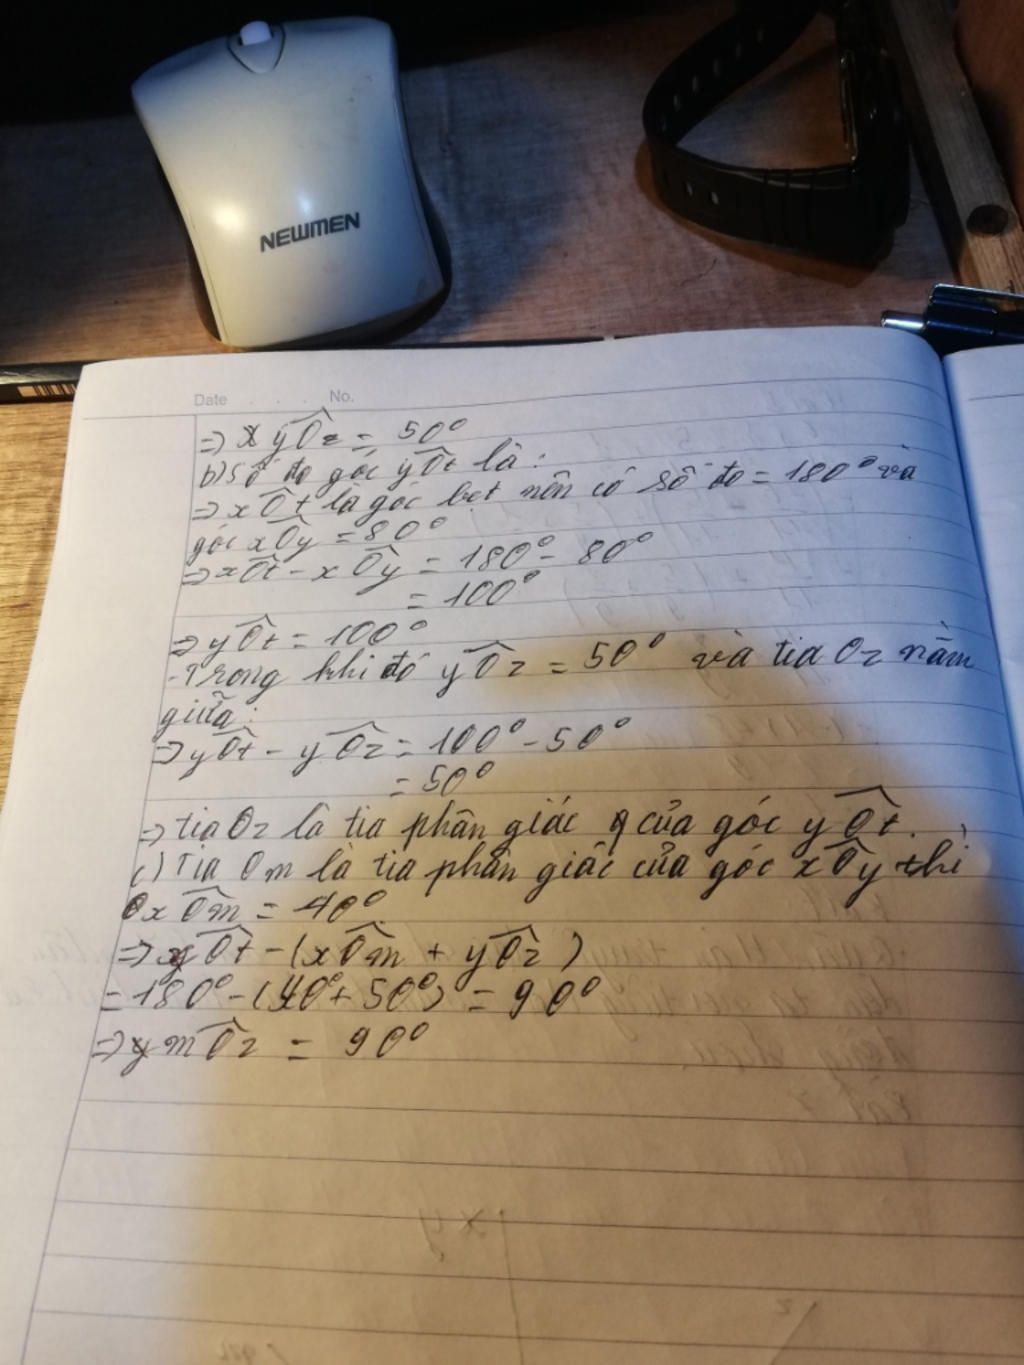 NEWMEN
Date . . . No.
=> yOz = 50°
b) Số đo góc yOt là :
=> xOt là góc bẹt nên có số đo = 180° và
góc xOy = 80°
=> xOt - xOy = 180° - 80°
= 100°
=> yOt = 100°
- Trong khi đó yOz = 50° và tia Oz nằm
giữa :
=> yOt - yOz = 100° - 50°
= 50°
=> tia Oz là tia phân giác của góc yOt.
c) Tia Om là tia phân giác của góc xOy thì
xOm = 40°
=> xOt - (xOm + yOz)
= 180° - (40° + 50°) = 90°
=> mOz = 90°